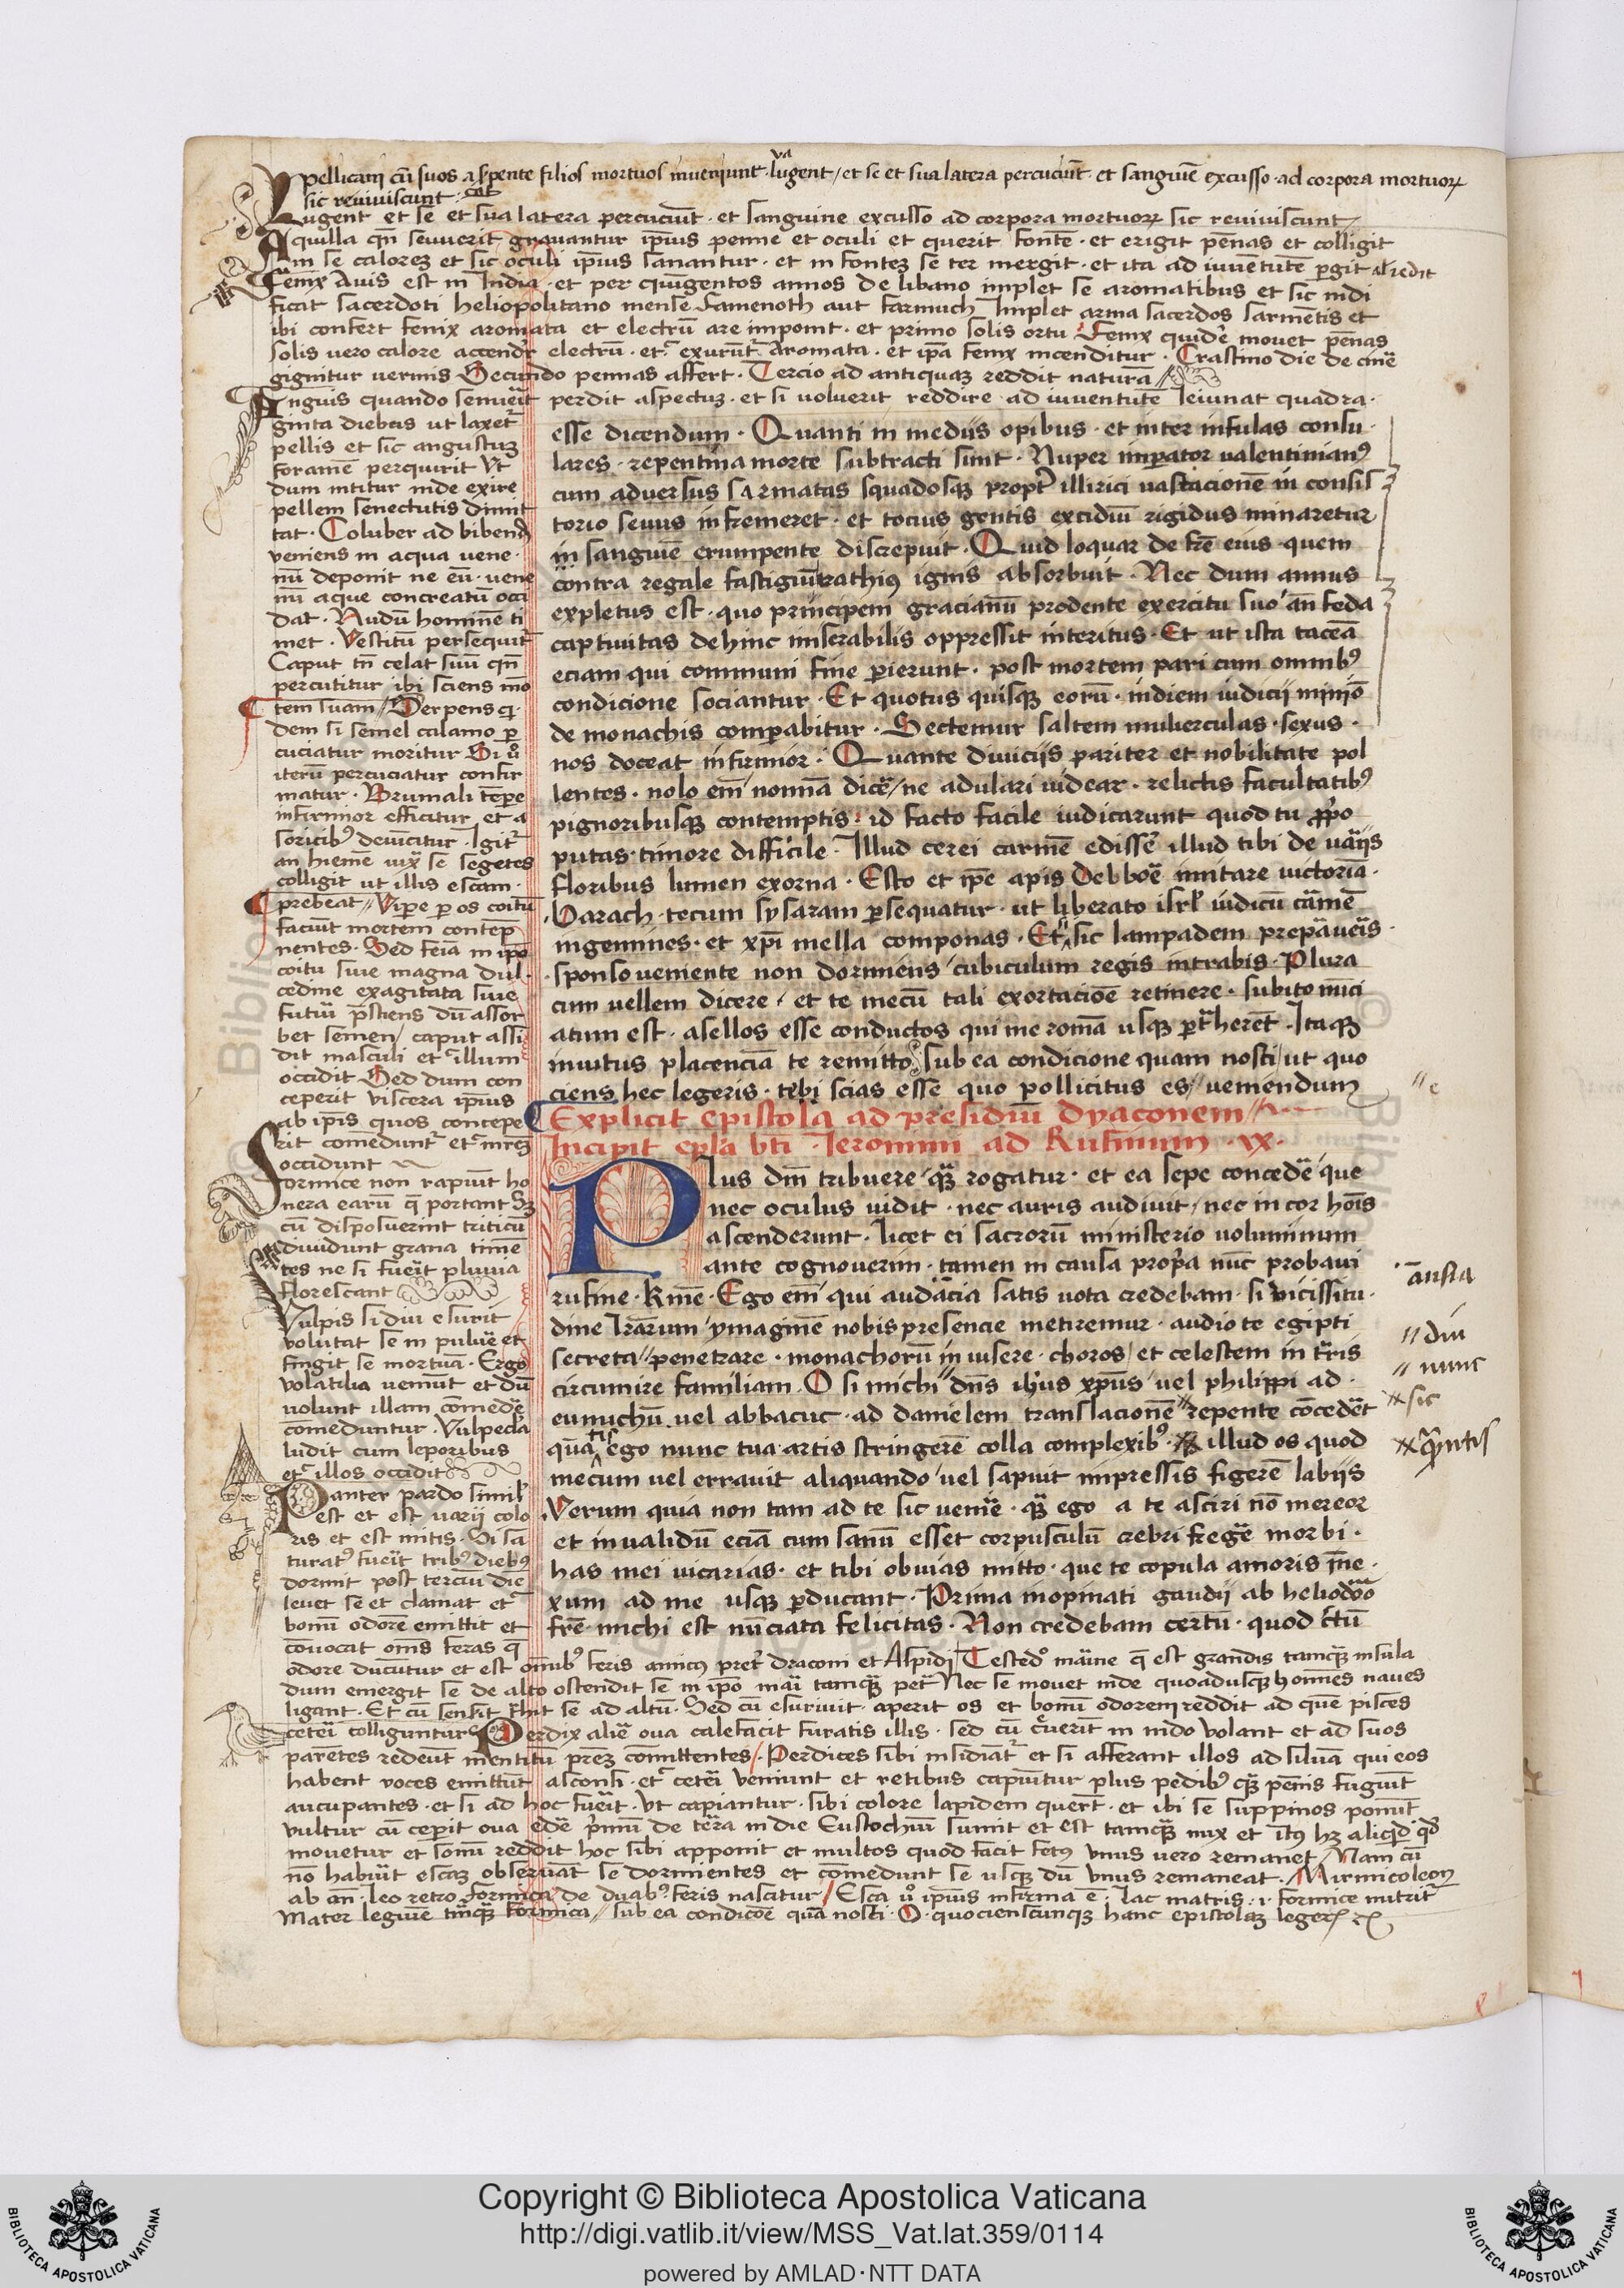 pellicani cū suos a spente filios mortuos inveniunt lugent / et se et sua latera percuciūt · et sanguinē excusso · ad corpora mortuoꝝ
sic reviviscunt
Lugent et se et sua latera percuciūt · et sanguine excusso ad corpora mortuoꝝ sic reviviscunt
Aquilla qn̄ senuerit gravantur ip̄ius penne et oculi et querit fontē · et erigit pēnas et colligit
se calorem et sic oculi ip̄ius sanantur · et in fontem se ter mergit · et ita ad iuuētutē pergit
Fenix Avis est in India · et per quīgentos annos de libano implet se aromatibus et sic indi
ficat sacerdoti heliopolitano mense famenoth aut farmuch Implet arma sacerdos sarmētis et
ibi confert fenix aromata et electrū are imponit · et primo solis ortu Fenix quidē movet pēnas
solis vero calore electrū · et exurūt aromata · et ip̄a fenix incenditur · Crastino die de cinē
gignitur vermis Secundo pennas affert · Tercio ad antiquam reddit naturā
Anguis quando senuerit perdit aspectum · et si voluerit reddire ad iuventutē Ieiunat quadra ·
ginta diebus ut laxet
pellis et sic angustum
foramē perquirit Ut
dum nititur inde exire
pellem senectutis dimit
tat · Coluber ad bibend
veniens in aqua vene ·
nū deponit ne eū · vene
nū aque concreatū occi
dat · Nudū hominē ti
met · Vestitū persequit
Caput tn̄ celat suū qn̄
percutitur ibi sciens mo
tem suam // Serpens q
dem si semel calamo p
cuciatur moritur Si v̊
iterū percuciatur confir
matur · Brumali tēpore
infirmior efficitur et a
soricib' devīcitur · Igit
an hieme se segetes
colligit ut illis escam ·
prebeat // Vipere p os coitū
faciūt mortem contēp
nentes · Sed feīa in ip̄o
coitu sive magna dul ·
cedine exagitata sive
futurū p̄sciens dū assor
bet semen / caput assi
dit masculi et illum
occidit Sed dum con
ceperit viscera ip̄ius
ab ip̄is quos concepe
rit comeduntʳ etʳ mr̄em
occidunt
Formice non rapiūt ho
nera earū q̄ portant Sʒ
cū disposuerint triticū
dividunt grana timē
tes ne si fuerit pluvia
florescant
Vulpis si diu esurit
volutat se in pulverē et
fingit se mortuā · Ergo
volatilia veniūt et dū
volunt illam comedē
comeduntur · Vulpecla
ludit cum leporibus
etʳ illos occidit
Panter pardo simil'
est et est varii colo
ris et est mitis · Si sa
turat' fuerit tribʒ diebʒ
dormit post terciū diē
levet se et clamat et
bonū odorē emittit et
cōvocat oms feras q̄
odore ducūtur et est omībʒ feris amicus pret̄ draconi et Aspidi Testedo marine q̄ est grandis tamqʒ insula
dum emergit se de alto ostendit se in ip̄o mari tamqʒ petr̄ Nec se movet inde quoadusqʒ homines naves
ligant · Et cū sensit se ad altū · Sed cū esurivit · aperit os et bonū odorem reddit ad quē pisces
ceteri colliguntur Perdix alie ova calefacit furatis illis · sed cū in nido volant et ad suos
parētes redeūt mentitū prem comittentes / Perdices sibi insidiātʳ et si afferant illos ad siluā qui eos
habent voces emittūt etʳ ceteri veniunt et retibus capiūtur plus pedibʒ qʒ pēnis fugiūt
aucupantes · et si ad hoc fuerit · Ut capiantur · sibi colore lapidem querūt · et ibi se suppinos ponūt
vultur cū ceperit ova edē p̄mū de tera indie Eustochiū sumit et est tamqʒ nux et aliqd qd
movetur et sonū reddit hoc sibi apponit et multos quod facit fetʒ unus vero remanet / Nam cū
nō habuerit escam observāt se dormientes et comedunt se usqʒ dū unus remaneat · Mirmicoleon
ab an̄ · leo retro formica de duabʒ feris nascitur / Esca v̊ ip̄ius infirma ē · lac matris · i · formice nutrit
Mater legiuē tāqʒ formica // sub ea condicōē quā nosti · O · quociēscunqʒ hanc epistolam leger
esse dicendum · Quanti in mediis opibus · et inter infulas consu ·
lares · repentina morte subtracti sunt · Nuper imperator valentinianʒ
cum adversus sarmatas squadosqʒ propt̄ illirici vastacionē in consis
torio seuus infremeret · et tocius gentis excidiū rigidus minaretur
in sanguinē erumpente discrepuit · Quid loquar de fr̄e eius · quem
contra regale fastigiū ignis absorbuit · Nec dum annus
expletus est · quo principem gracianū prodente exercitu suo an̄ feda
captivitas dehinc miserabilis oppressit interitus · Et ut ista taceā
eciam qui communi fine perierunt · post mortem pari cum omnibʒ
condicione sociantur · Et quotus quisqʒ eorū · in diem iudicii minīo
de monachis comparabitur · Sectemur saltem mulierculas · sexus ·
nos doceat infirmior · Quante diviciis pariter et nobilitate pol
lentes · nolo em̄ nomina dicē / ne adulari videar · relictis facultatibʒ
pignoribusqʒ contemptis · id facto facile iudicarunt quod tu ꝓpo
putas · timore difficile · Illud cerei carmē edissē illud tibi de variis
floribus lumen exorna · Esto et ip̄e apis Debborē imitare victoriā ·
Barach · tecum sysaram persequatur · ut liberato isrl' iudicū carmē
ingemines · et xp̄i mella componas · Et sic lampadem preparaveris ·
sponso veniente non dormiens cubiculum regis intrabis · Plura
cum vellem dicere / et te mecū tali exortacione retinere · subito nūci
atum est · asellos esse conductos qui me romā usqʒ pertraherent · Itaqʒ
invitus placenciā te remitto sub ea condicione quam nosti / ut quo
ciens hec legeris · tibi scias esse quo pollicitus es // veniendum
// e
Explicit epistola ad presidiū dyaconem
Incipit epla bti Ieronimi ad Rufinum · ix ·
Plus dm̄ tribuere qʒ rogatur · et ea sepe concedē que
nec oculus vidit · nec auris audivit / nec in cor hōis
ascenderunt · licet ei sacrorū ministerio voluminum
ante cognoverim · tamen in causa propria nūc probavi
rufine · Kme · Ego em̄ qui audacia satis vota credebam · si vicissitu ·
dine lrārum ymaginē nobis presencie metiremur · audio te egipti
secreta // penetrare · monachorū invisere · choros / et celestem in tr̄ris
circumire familiam · O si michi dn̄s ih̄us xp̄us vel philippi ad ·
eunuchū vel abbacuc · ad danielem translacionē repente concedēt
quā ego nunc tua artis stringerē colla complexibʒ · illud os quod
mecum vel erravit aliquando / vel sapuit impressis figerē labiis
Verum quia non tam ad te sic venire · qʒ ego a te asciri nō mereor
et invalidū eciā cum sanū esset corpusculū crebri fregē morbi ·
has mei vicarias · et tibi obvias mitto · que te copula amoris īne ·
xum ad me usqʒ perducant · Prima inopinati gaudii ab heliodoro
fr̄e michi est nūciata felicitas · Non credebam certū · quod c̄tū
// diu
// nunc
sic